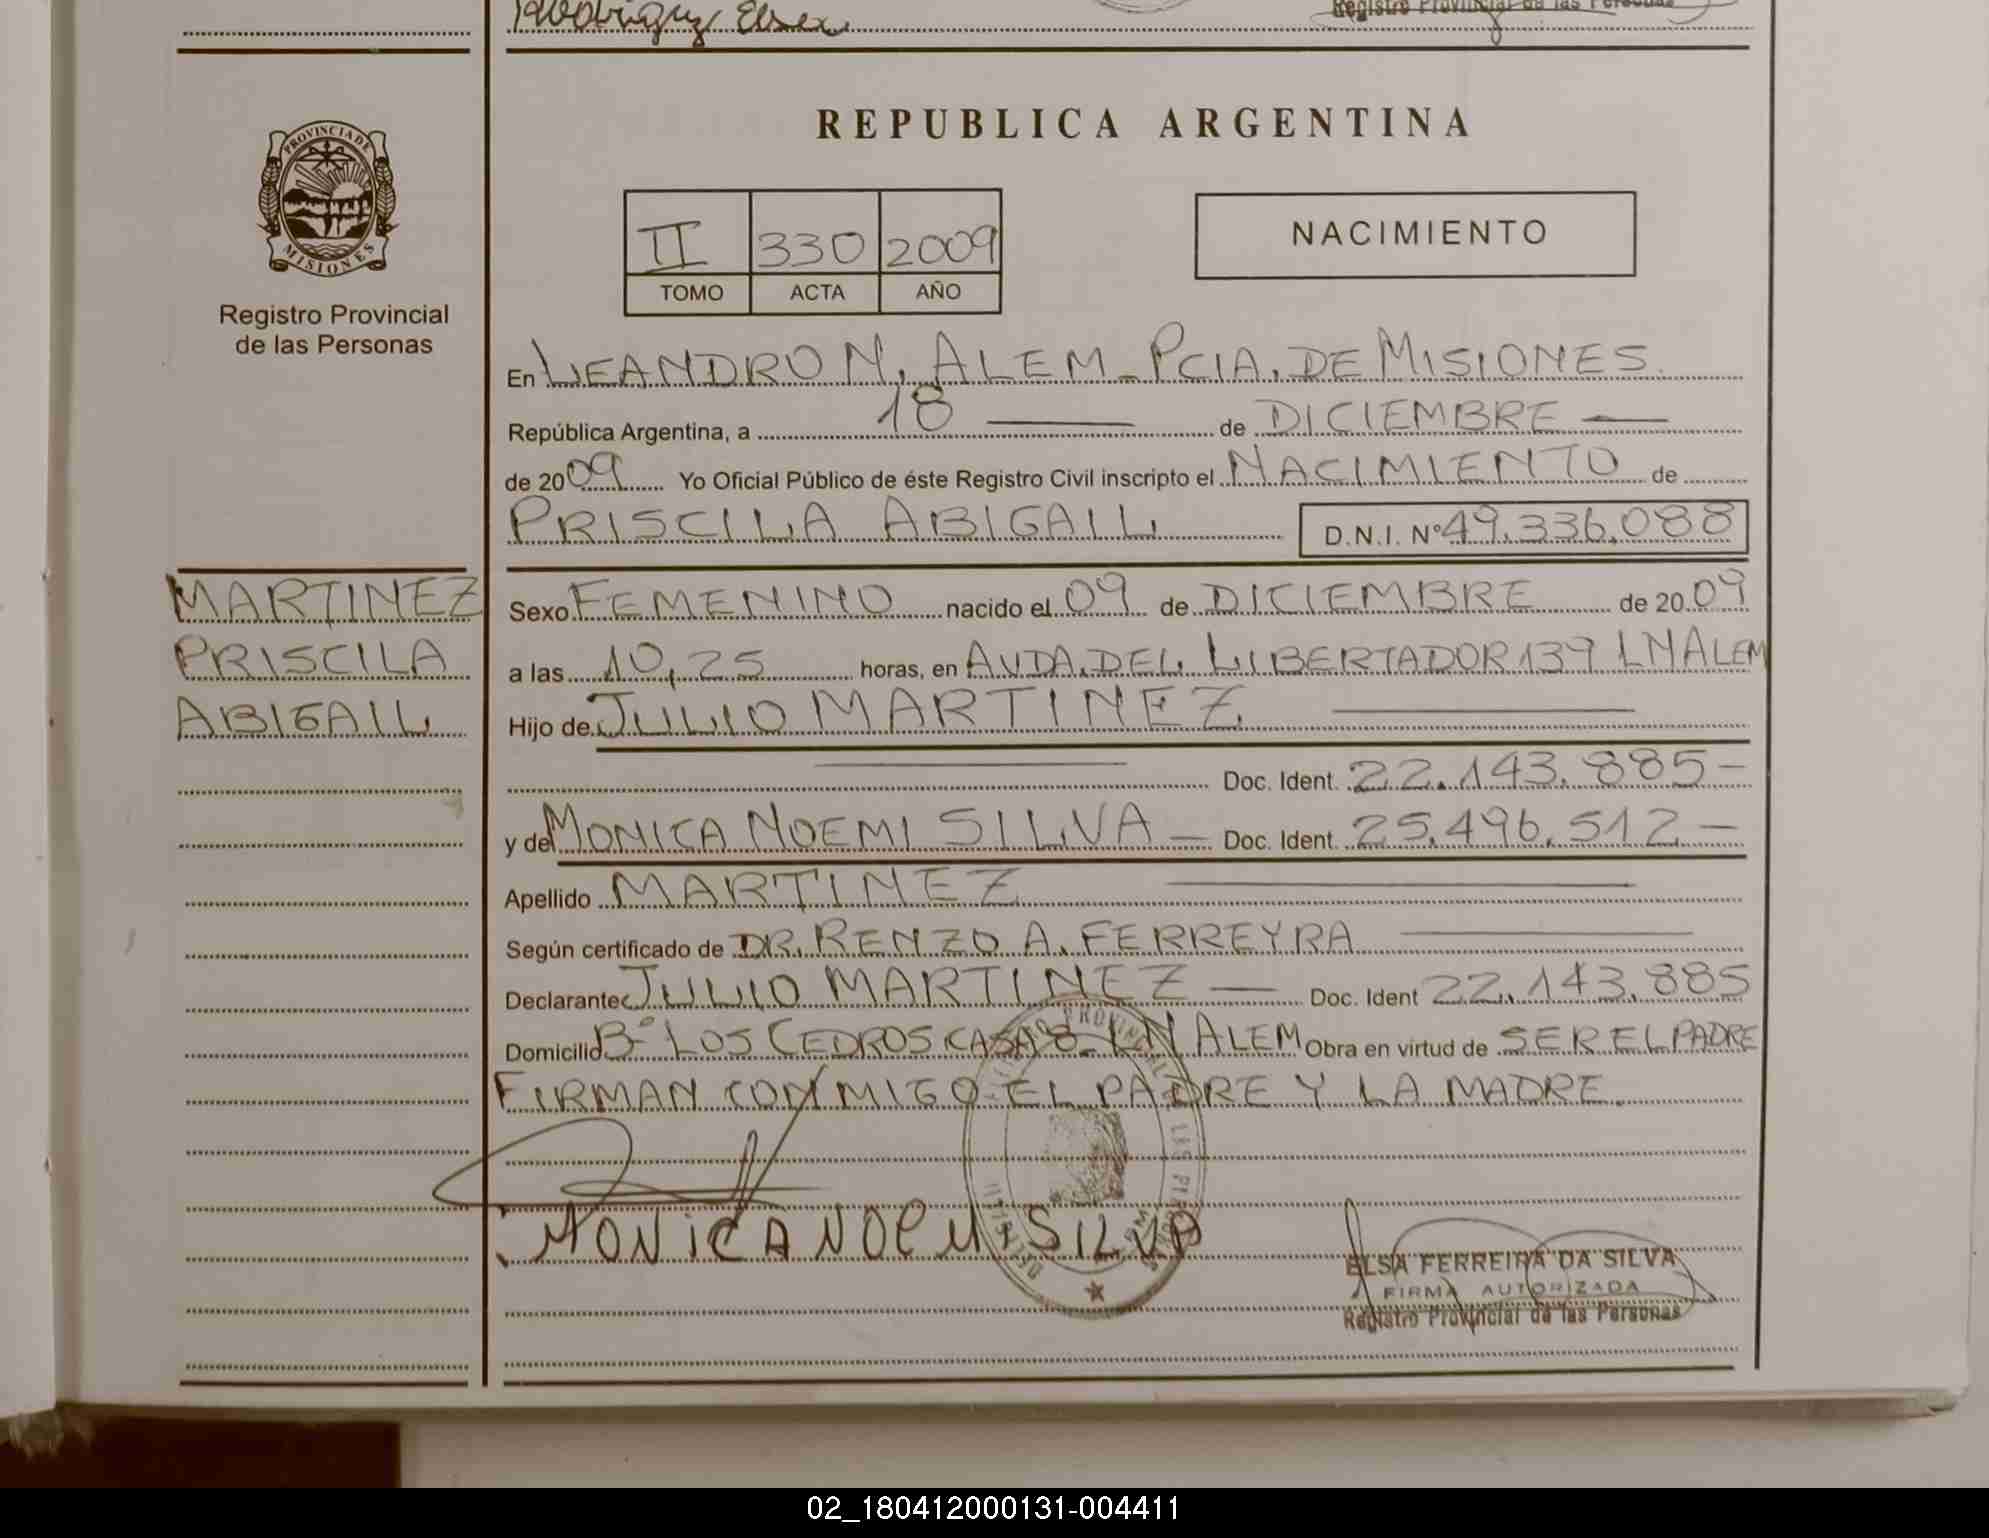 Rodriguez Elsa
Registro Provincial de las Personas
PROVINCIA DE
MISIONES
Registro Provincial
de las Personas
REPUBLICA ARGENTINA
II 330 2009
TOMO ACTA AÑO
NACIMIENTO
En LEANDRO N. ALEM - PCIA. DE MISIONES.
República Argentina, a 18 de DICIEMBRE
de 2009 Yo Oficial Público de éste Registro Civil inscripto el NACIMIENTO de
PRISCILA ABIGAIL D.N.I. Nº 49.336.088
MARTINEZ
PRISCILA
ABIGAIL
Sexo FEMENINO nacido el 09 de DICIEMBRE de 2009
a las 10,25 horas, en AVDA. DEL LIBERTADOR 139 LN ALEM
Hijo de JULIO MARTINEZ
Doc. Ident. 22.143.885-
y de MONICA NOEMI SILVA - Doc. Ident. 25.496.512-
Apellido MARTINEZ
Según certificado de DR. RENZO A. FERREYRA
Declarante JULIO MARTINEZ - Doc. Ident 22.143.885
Domicilio Bº LOS CEDROS CASA 8 - LN ALEM Obra en virtud de SER EL PADRE
FIRMAN CONMIGO EL PADRE Y LA MADRE.
MONICA NOEMI SILVA
ELSA FERREIRA DA SILVA
FIRMA AUTORIZADA
Registro Provincial de las Personas
02_180412000131-004411